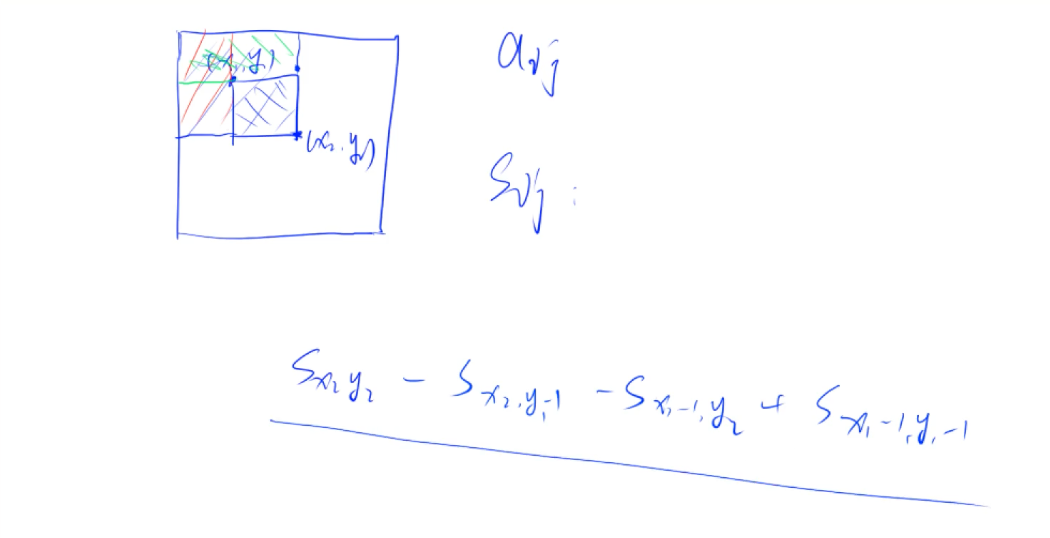 (x₁, y₁)
aᵢⱼ
(x₂, y₂)
Sᵢⱼ :
Sx₂y₂ - Sx₂,y₁-1 - Sx₁-1,y₂ + Sx₁-1,y₁-1